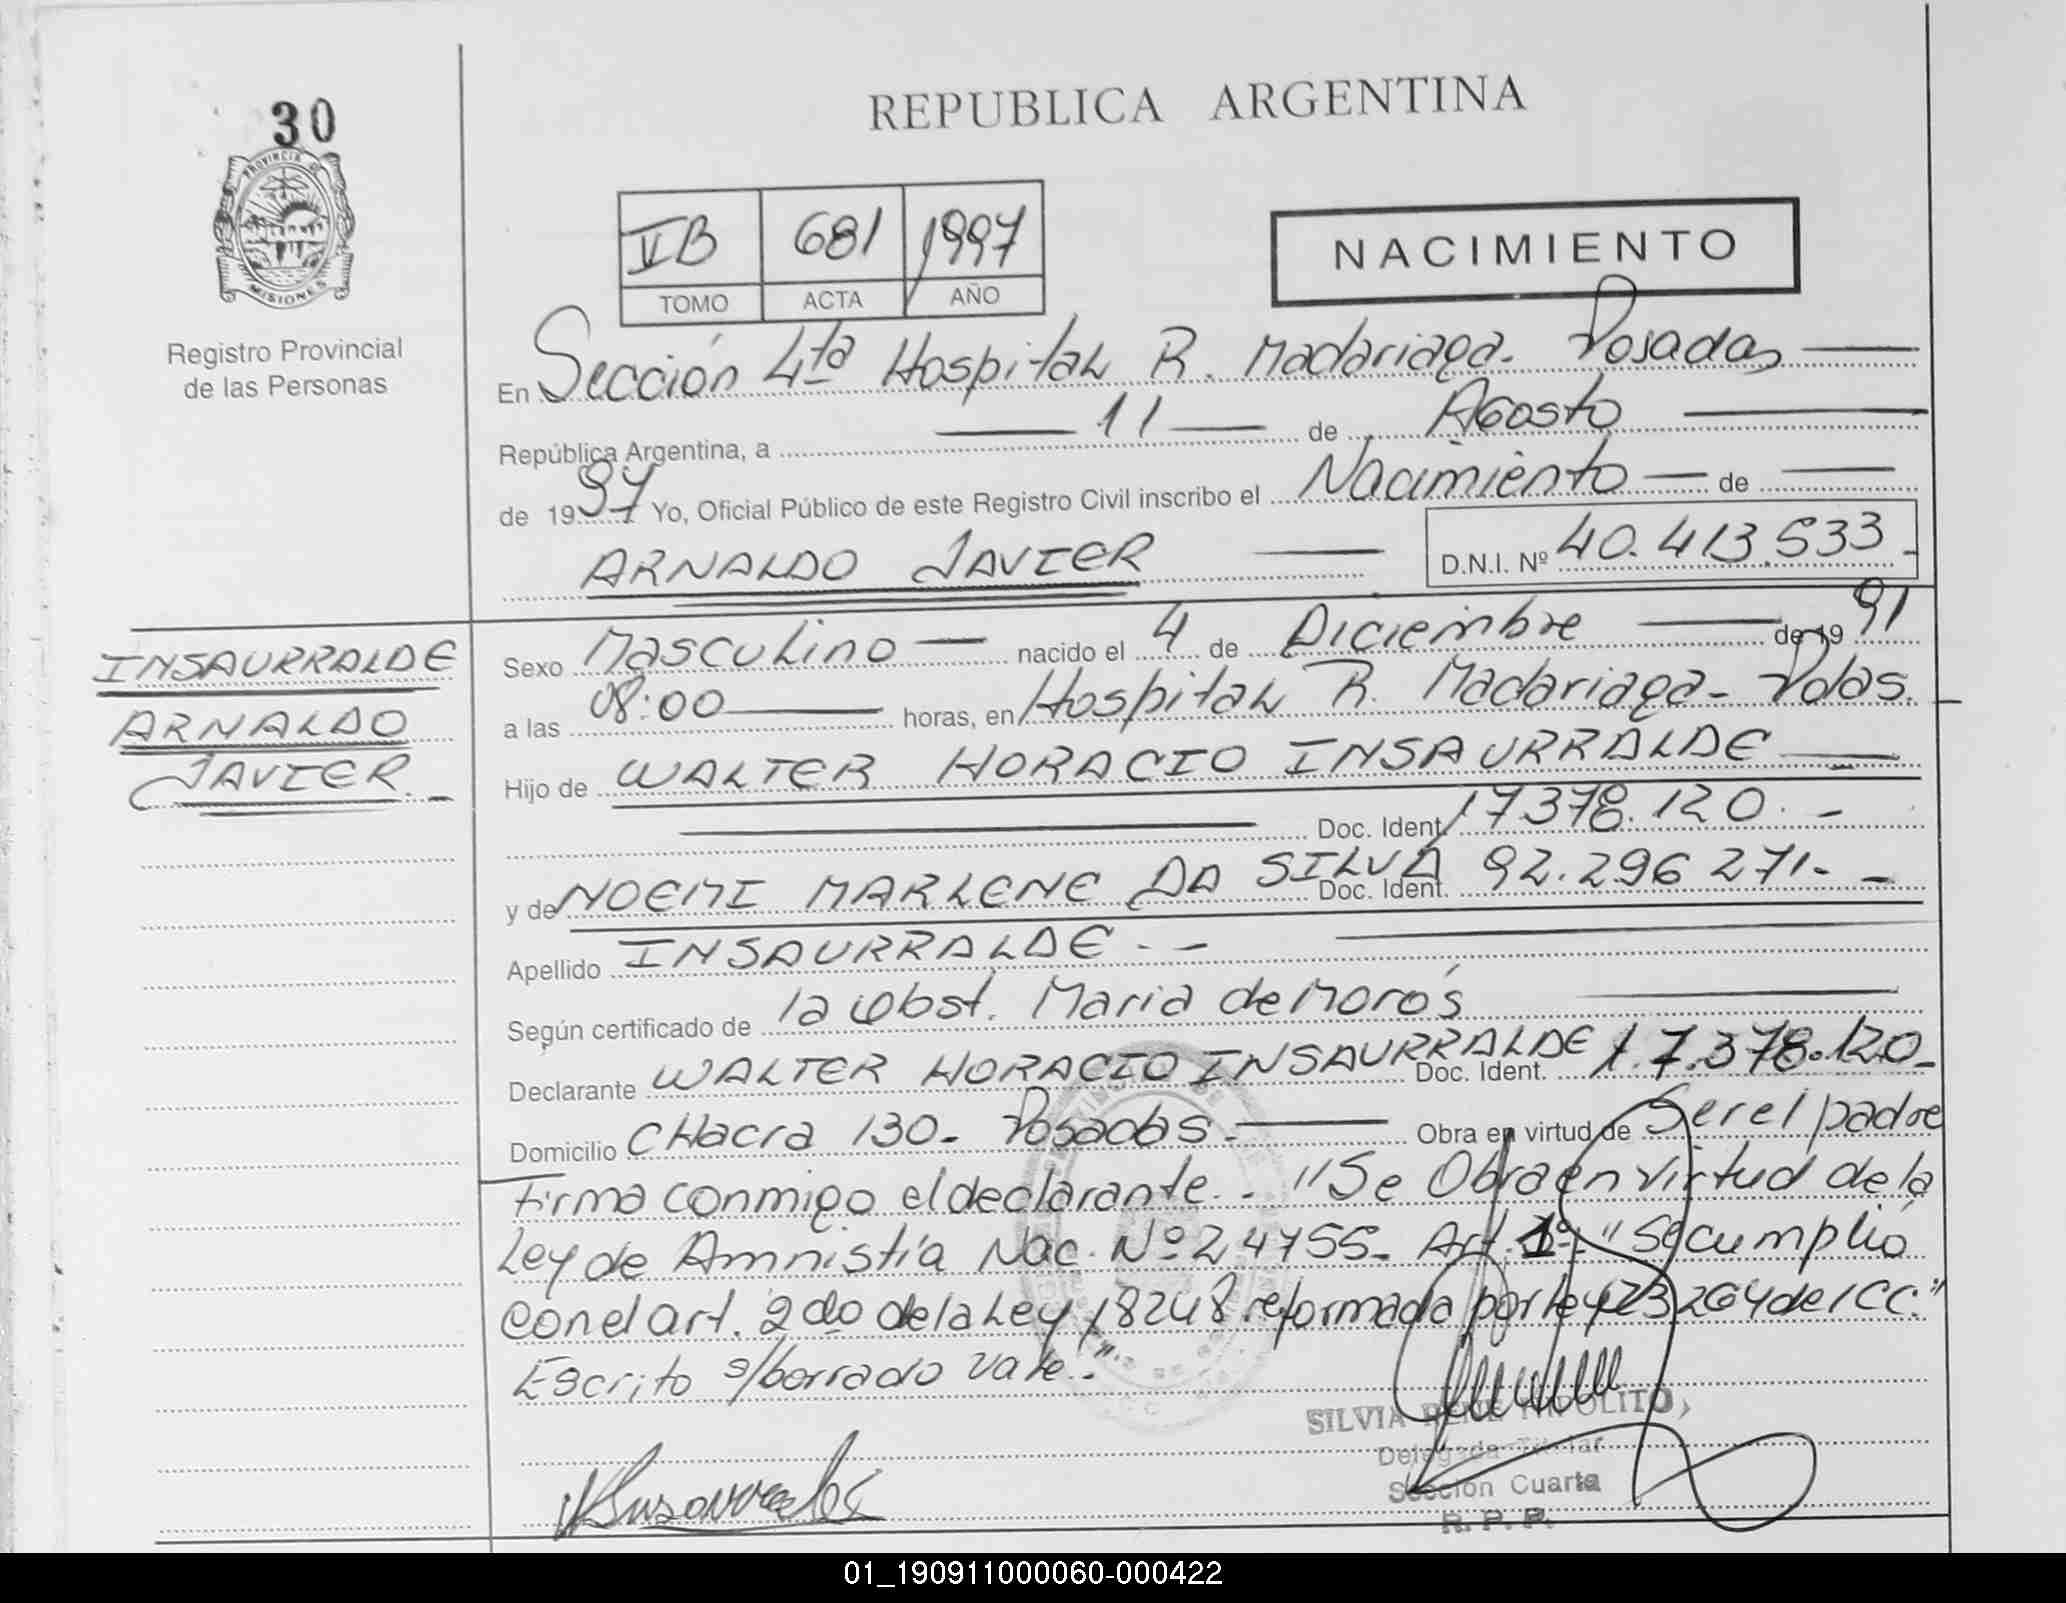 30
PROVINCIA DE
MISIONES
Registro Provincial
de las Personas
REPUBLICA ARGENTINA
VB 681 1997
TOMO ACTA AÑO
NACIMIENTO
En Sección 4ta Hospital R. Madariaga. Posadas
República Argentina, a 11 de Agosto
de 1997 Yo, Oficial Público de este Registro Civil inscribo el Nacimiento de
ARNALDO JAVIER
D.N.I. Nº 40.413.533
INSAURRALDE
ARNALDO
JAVIER.
Sexo Masculino nacido el 4 de Diciembre de 1991
a las 08:00 horas, en Hospital R. Madariaga - Pdas.
Hijo de WALTER HORACIO INSAURRALDE
Doc. Ident. 17378.120.-
y de NOEMI MARLENE DA SILVA Doc. Ident. 92.296 271.-
Apellido INSAURRALDE.-
Según certificado de la Obst. Maria de Morós
Declarante WALTER HORACIO INSAURRALDE Doc. Ident. 17.378.120-
Domicilio CHacra 130- Posadas.- Obra en virtud de Ser el padre
Firma conmigo el declarante.- "Se Obra en virtud de la
Ley de Amnistía Nac. Nº 24755- Art. 1º" "Se cumplió
con el art. 2do de la Ley 18248 reformada por ley 23264 del CC."
Escrito s/borrado vale.-
SILVIA RENE
Delegada Titular
Sección Cuarta
R. P. P.
01_190911000060-000422